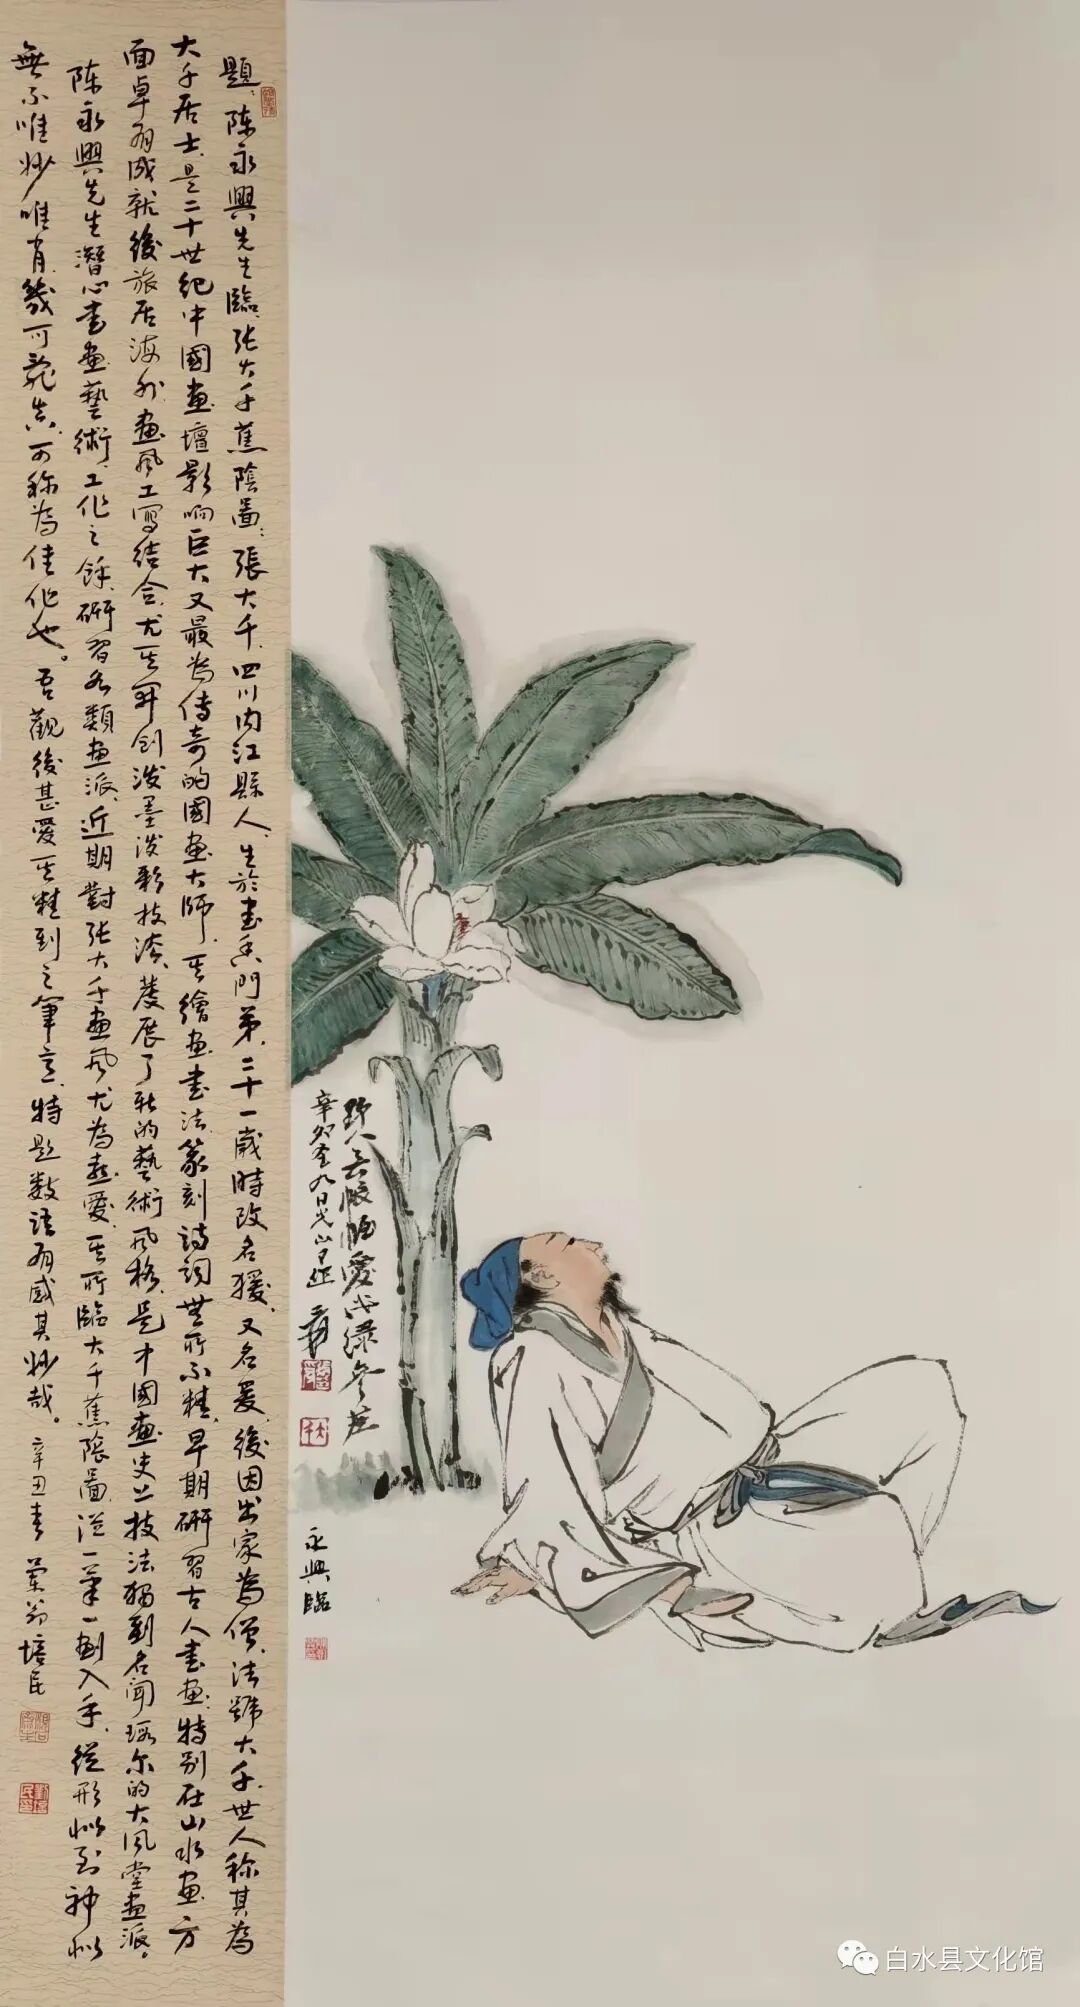 題：陈永興先生臨张大千蕉陰圖：張大千，四川内江縣人，生於書香門第，二十一歲時改名猨，又名爰，後因出家為僧，法號大千，世人称其為
大千居士，是二十世紀中國畫壇影响巨大又最為傳奇的國畫大師，其繪畫書法篆刻詩詞無所不精，早期研習古人書畫，特别在山水畫方
面卓有成就，後旅居海外，畫風工寫结合，尤其开创泼墨泼彩技法，發展了新的藝術風格，是中國畫史上技法独到名聞遐尔的大風堂畫派。
陈永興先生潛心書畫藝術，工作之餘，研習各類畫派，近期對张大千畫風尤為熱愛，其所臨大千蕉蔭圖，從一筆一劃入手，從形似到神似
無不唯妙唯肖，幾可乱真，可称為佳作也。吾觀後甚愛其精到之筆意，特題数語，有感其妙哉。辛丑春 蘭翁培民
野人無帳幄愛此绿参差
辛卯 九日
爰
永興臨
白水县文化馆